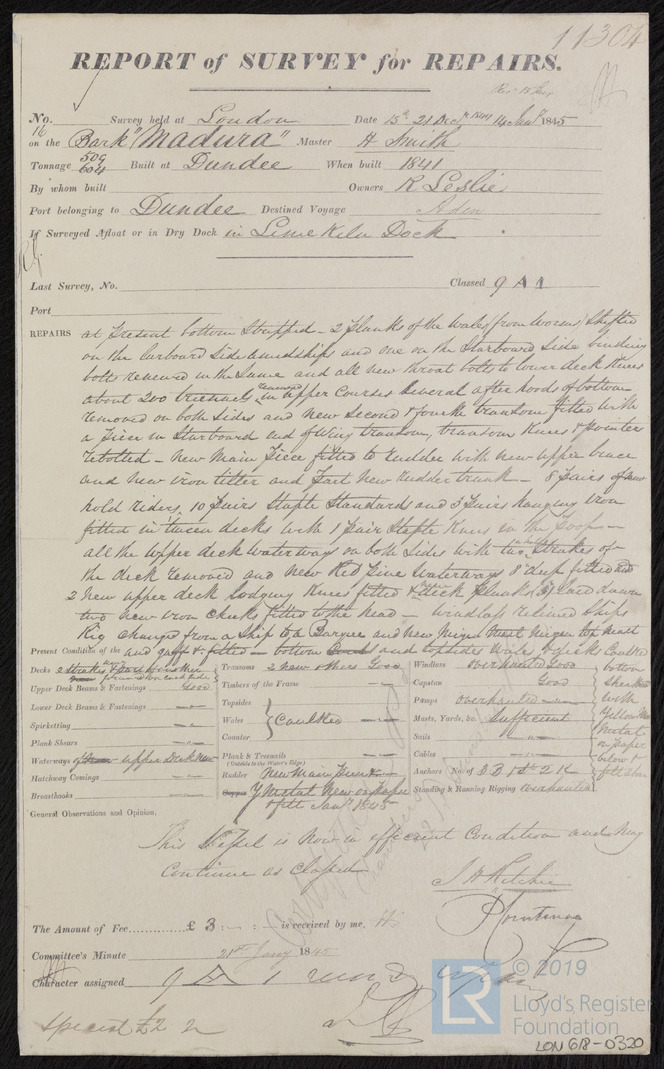 11304
REPORT of SURVEY for REPAIRS.
No. 16 Survey held at London Date 15th 21 Decr 1844 14 Jany 1845
on the Bark "Madura" Master H Smith
Tonnage 509 604 Built at Dundee When built 1841
By whom built Owners R Leslie
Port belonging to Dundee Destined Voyage Aden
If Surveyed Afloat or in Dry Dock in Lime Kiln Dock
Last Survey, No. Classed 9 A 1
Port
REPAIRS at Present bottom Stripped - 2 planks of the Wales (from Worms) Shifted
on the Larboard Side amidships and one on the Starboard Side binding
bolts renewed in the same and all new throat bolts to lower deck Knees
about 200 treenails renewed in upper Courses Several after hoods of bottom
removed on both Sides and new Second & fourth transom fitted with
a Piece in Starboard end of Wing transom, transom Knees & pointers
rebolted - new Main Piece fitted to Rudder with new upper brace
and new iron tiller and Part New Rudder trunk - 8 Pairs of new
hold riders, 10 Pairs Staple Standards and 3 Pairs hanging iron
fitted in tween decks with 1 Pair Staple Knees in the Poop -
all the upper deck waterways on both Sides with two Strakes of
the deck removed and new Red Pine Waterways 8 deep fitted and
2 new upper deck lodging Knees fitted & deck planks laid down
two new iron Cheeks fitted to the head - Windlass relined Ships
Rig changed from a Ship to a Barque and new Mizen Mast Mizen top mast
and gaff & fitted - bottom and topsides Wales & decks Caulked
Present Condition of the
Decks 2 Strakes
Upper Deck Beams & Fastenings Good
Lower Deck Beams & Fastenings
Spirketting
Plank Shears
Waterways of upper Deck New
Hatchway Comings
Breasthooks
Transoms 2 new others Good
Timbers of the Frame
Topsides
Wales Caulked
Counter
Plank & Treenails
(Outside to the Water's Edge)
Rudder New Main Piece
Copper Y Metal New on Paper
& felt Jany 1845
Windlass overhauled Good
Capstan Good
Pumps overhauled
Masts, Yards, &c. Sufficient
Sails
Cables
Anchors No. of 3 B 1 St 2 K
Standing & Running Rigging overhauled
bottom
sheathed
with
Yellow
Metal
on paper
below &
felt above
General Observations and Opinion.
This Vessel is now in efficient Condition and May
Continue as Classed
J H Ritchie
The Amount of Fee £ 3 : - : - is received by me,
Committee's Minute 21st Jany 1845
Character assigned 9 A 1
special £2 2
LR © 2019
Lloyd's Register
Foundation
LON 618-0320